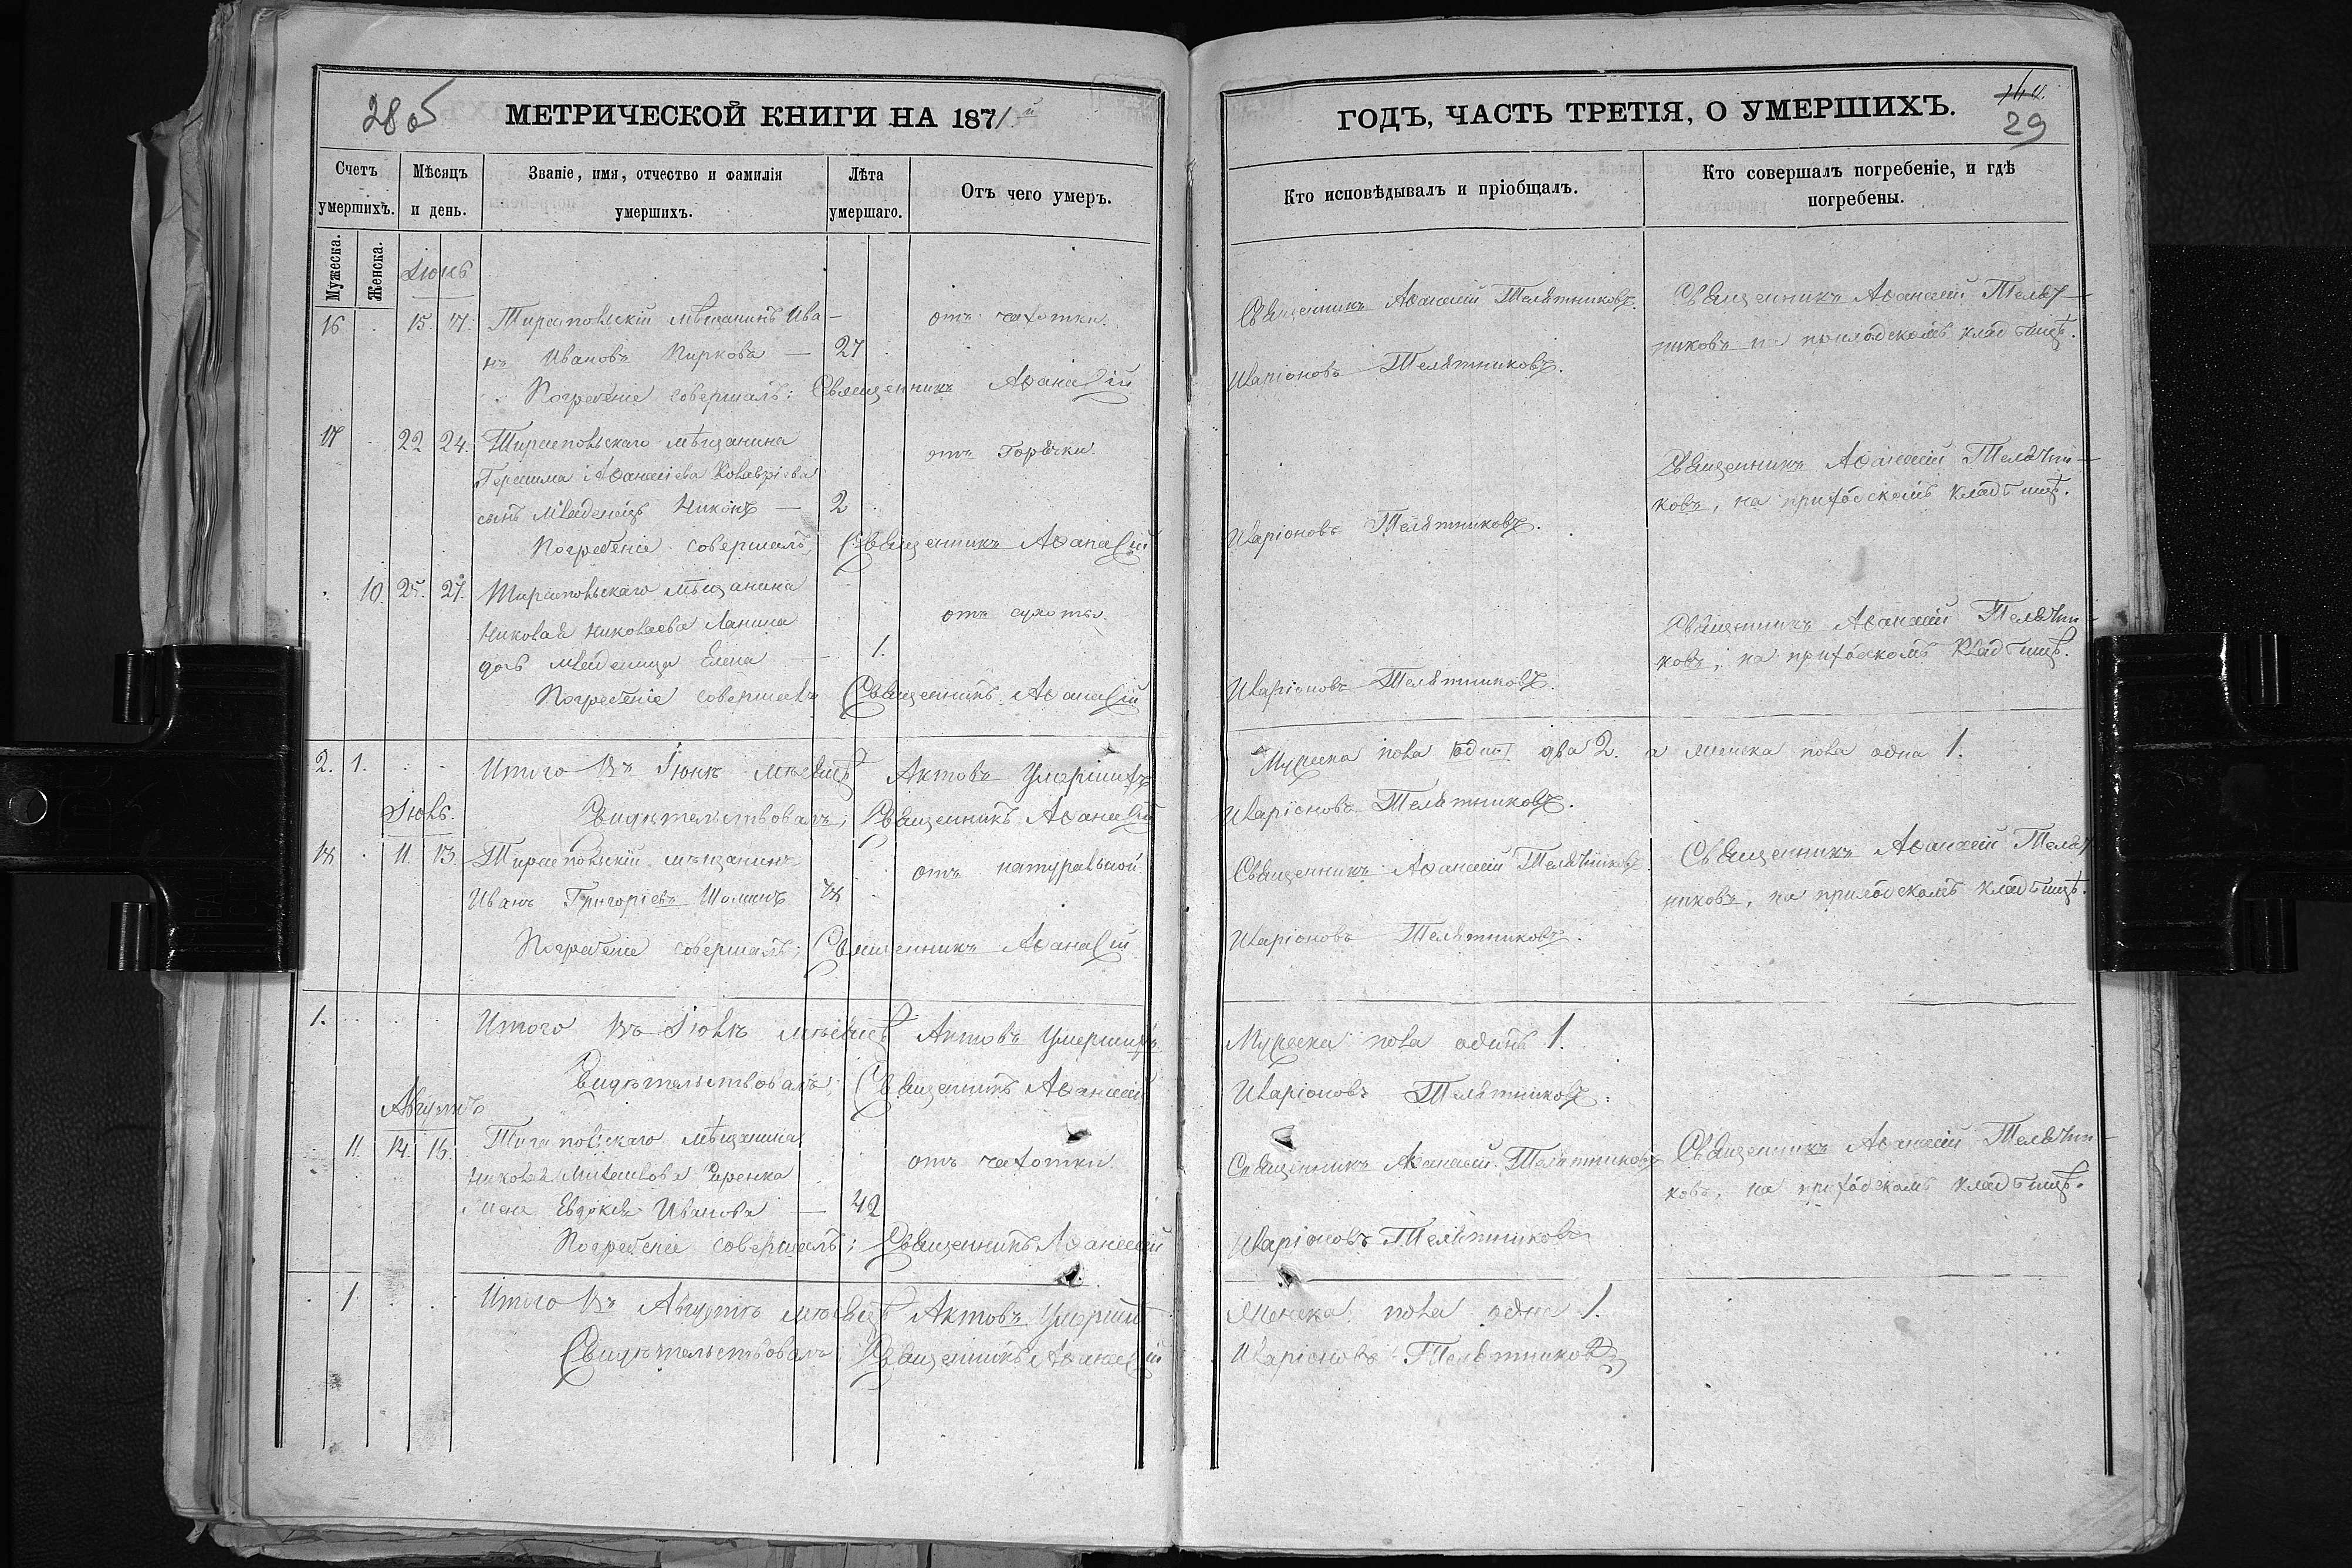 285
МЕТРИЧЕСКОЙ КНИГИ НА 1871й
Счетъ умершихъ.
Мѣсяцъ и день.
Званіе, имя, отчество и фамилія умершихъ.
Лѣта умершаго.
Отъ чего умеръ.
Мужеска.
Женска.
Іюнь
16 15. 17. Тираспольскій мѣщанинъ Ива-
нъ Ивановъ — 27 отъ чахотки.
Погребеніе совершалъ: Священникъ Афанасій
17 22 24. Тираспольскаго мѣщанина
Герасима Афанасіева
сынъ младенецъ Никонъ — 2 отъ Горячки.
Погребеніе совершалъ; Священникъ Афанасій
10. 25. 27. Тираспольскаго мѣщанина
Николая Николаева Ланина
дочь младеница Елена — 1. отъ сухоты.
Погребеніе совершалъ Священникъ Афанасій
2. 1. Итого въ Іюнѣ мѣсяцѣ Актовъ Умершихъ
Свидѣтельствовалъ; Священникъ Афанасій
Іюль.
18 11. 13. Тираспольскій мѣщанинъ
Иванъ Григоріевъ 78 отъ натуральной.
Погребеніе совершалъ; Священникъ Афанасій
1. Итого въ Іюлѣ мѣсяцѣ Актовъ Умершихъ
Свидѣтельствовалъ; Священникъ Афанасій
Августъ
11. 14. 16. Тираспольскаго мѣщанина
Николая
жена Евдокія Иванова — 42 отъ чахотки.
Погребеніе совершалъ; Священникъ Афанасій
1. Итого въ Августѣ мѣсяцѣ Актовъ Умерших
Свидѣтельствовалъ Священникъ Афанасій
ГОДЪ, ЧАСТЬ ТРЕТІЯ, О УМЕРШИХЪ.
29
Кто исповѣдывалъ и пріобщалъ.
Кто совершалъ погребеніе, и гдѣ погребены.
Священникъ Афанасій Телятниковъ.
Священникъ Афанасій Телят-
никовъ на приходскомъ кладбищѣ.
Иларіоновъ Телятниковъ.
Священникъ Афанасій Телятни-
ковъ, на приходскомъ кладбищѣ.
Иларіоновъ Телятниковъ.
Священникъ Афанасій Телятни-
ковъ, на приходскомъ кладбищѣ.
Иларіоновъ Телятниковъ.
Мужеска пола два 2. а женска пола одна 1.
Иларіоновъ Телятниковъ.
Священникъ Афанасій Телятниковъ
Священникъ Афанасій Телят
никовъ, на приходскомъ кладбищѣ.
Иларіоновъ Телятниковъ.
Мужеска пола одинъ 1.
Иларіоновъ Телятниковъ.
Священникъ Афанасій Телятниковъ
Священникъ Афанасій Телятни-
ковъ, на приходскомъ кладбищѣ.
Иларіоновъ Телятниковъ
Женска пола одна 1.
Иларіоновъ Телятниковъ